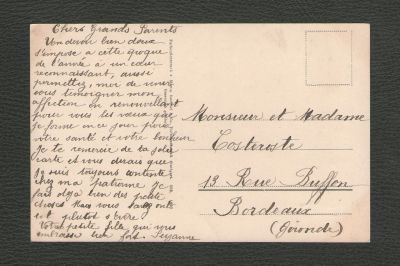 Chers Grands Parents
Un devoir bien doux
s'impose à cette époque
de l'année à un cœur
reconnaissant, aussi
permettez, moi de venir
vous témoigner mon
affection en renouvellant
pour vous les vœux que
je forme en ce jour pour
votre santé et votre bonheur
Je te remercie de ta jolie
carte et vous dirais que
Je suis toujours contente
chez ma patronne je
fais déja bien des petite
choses Mais vous
est plutot
Votre petite fille qui vous
embrasse bien fort. Suzanne
Monsieur et Madame
Costeroste
13 Rue Buffon
Bordeaux
(Gironde)